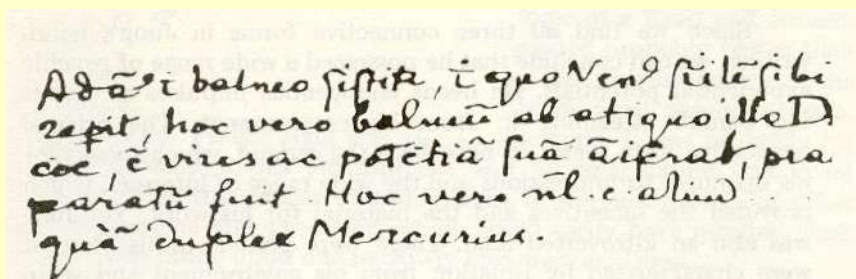 Adā' ī balneo sistitr, ī quo Ven9 silē sibi
repit, hoc vero balneū ab atiquo illo D
coē, vires ac potētiā suā āiserat, præ
paratū fuit. Hoc vero nl. e. aliud
quā duplex Mercurius.